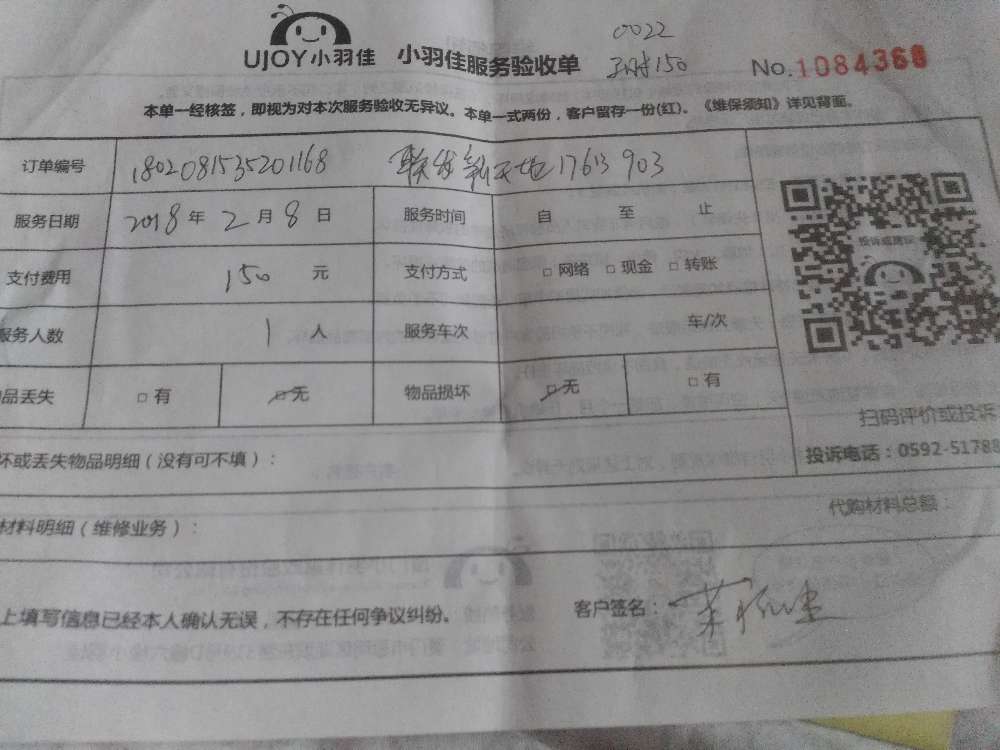 0022
UJOY小羽佳 小羽佳服务验收单 150 No.1084368
本单一经核签，即视为对本次服务验收无异议。本单一式两份，客户留存一份(红)。《维保须知》详见背面。
订单编号 1802081535201168 联发新天地 1761 903
服务日期 2018 年 2 月 8 日 服务时间 自 至 止
投诉或建议
支付费用 150 元 支付方式 □ 网络 □ 现金 □ 转账
服务人数 1 人 服务车次 车/次
品丢失 □ 有 □ 无 物品损坏 □ 无 □ 有
扫码评价或投诉
坏或丢失物品明细（没有可不填）： 投诉电话：0592-51788
材料明细（维修业务）： 代购材料总额：
上填写信息已经本人确认无误，不存在任何争议纠纷。 客户签名：